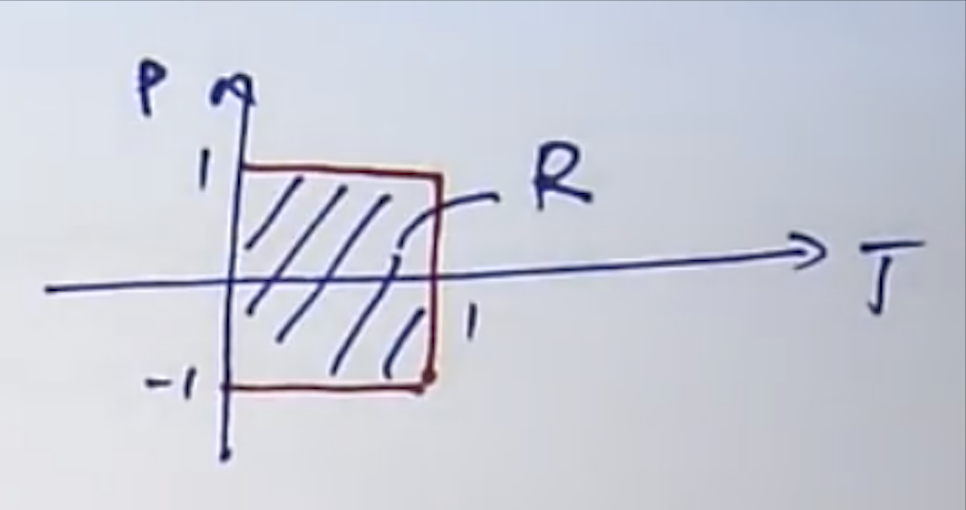 P
1
R
J
1
-1